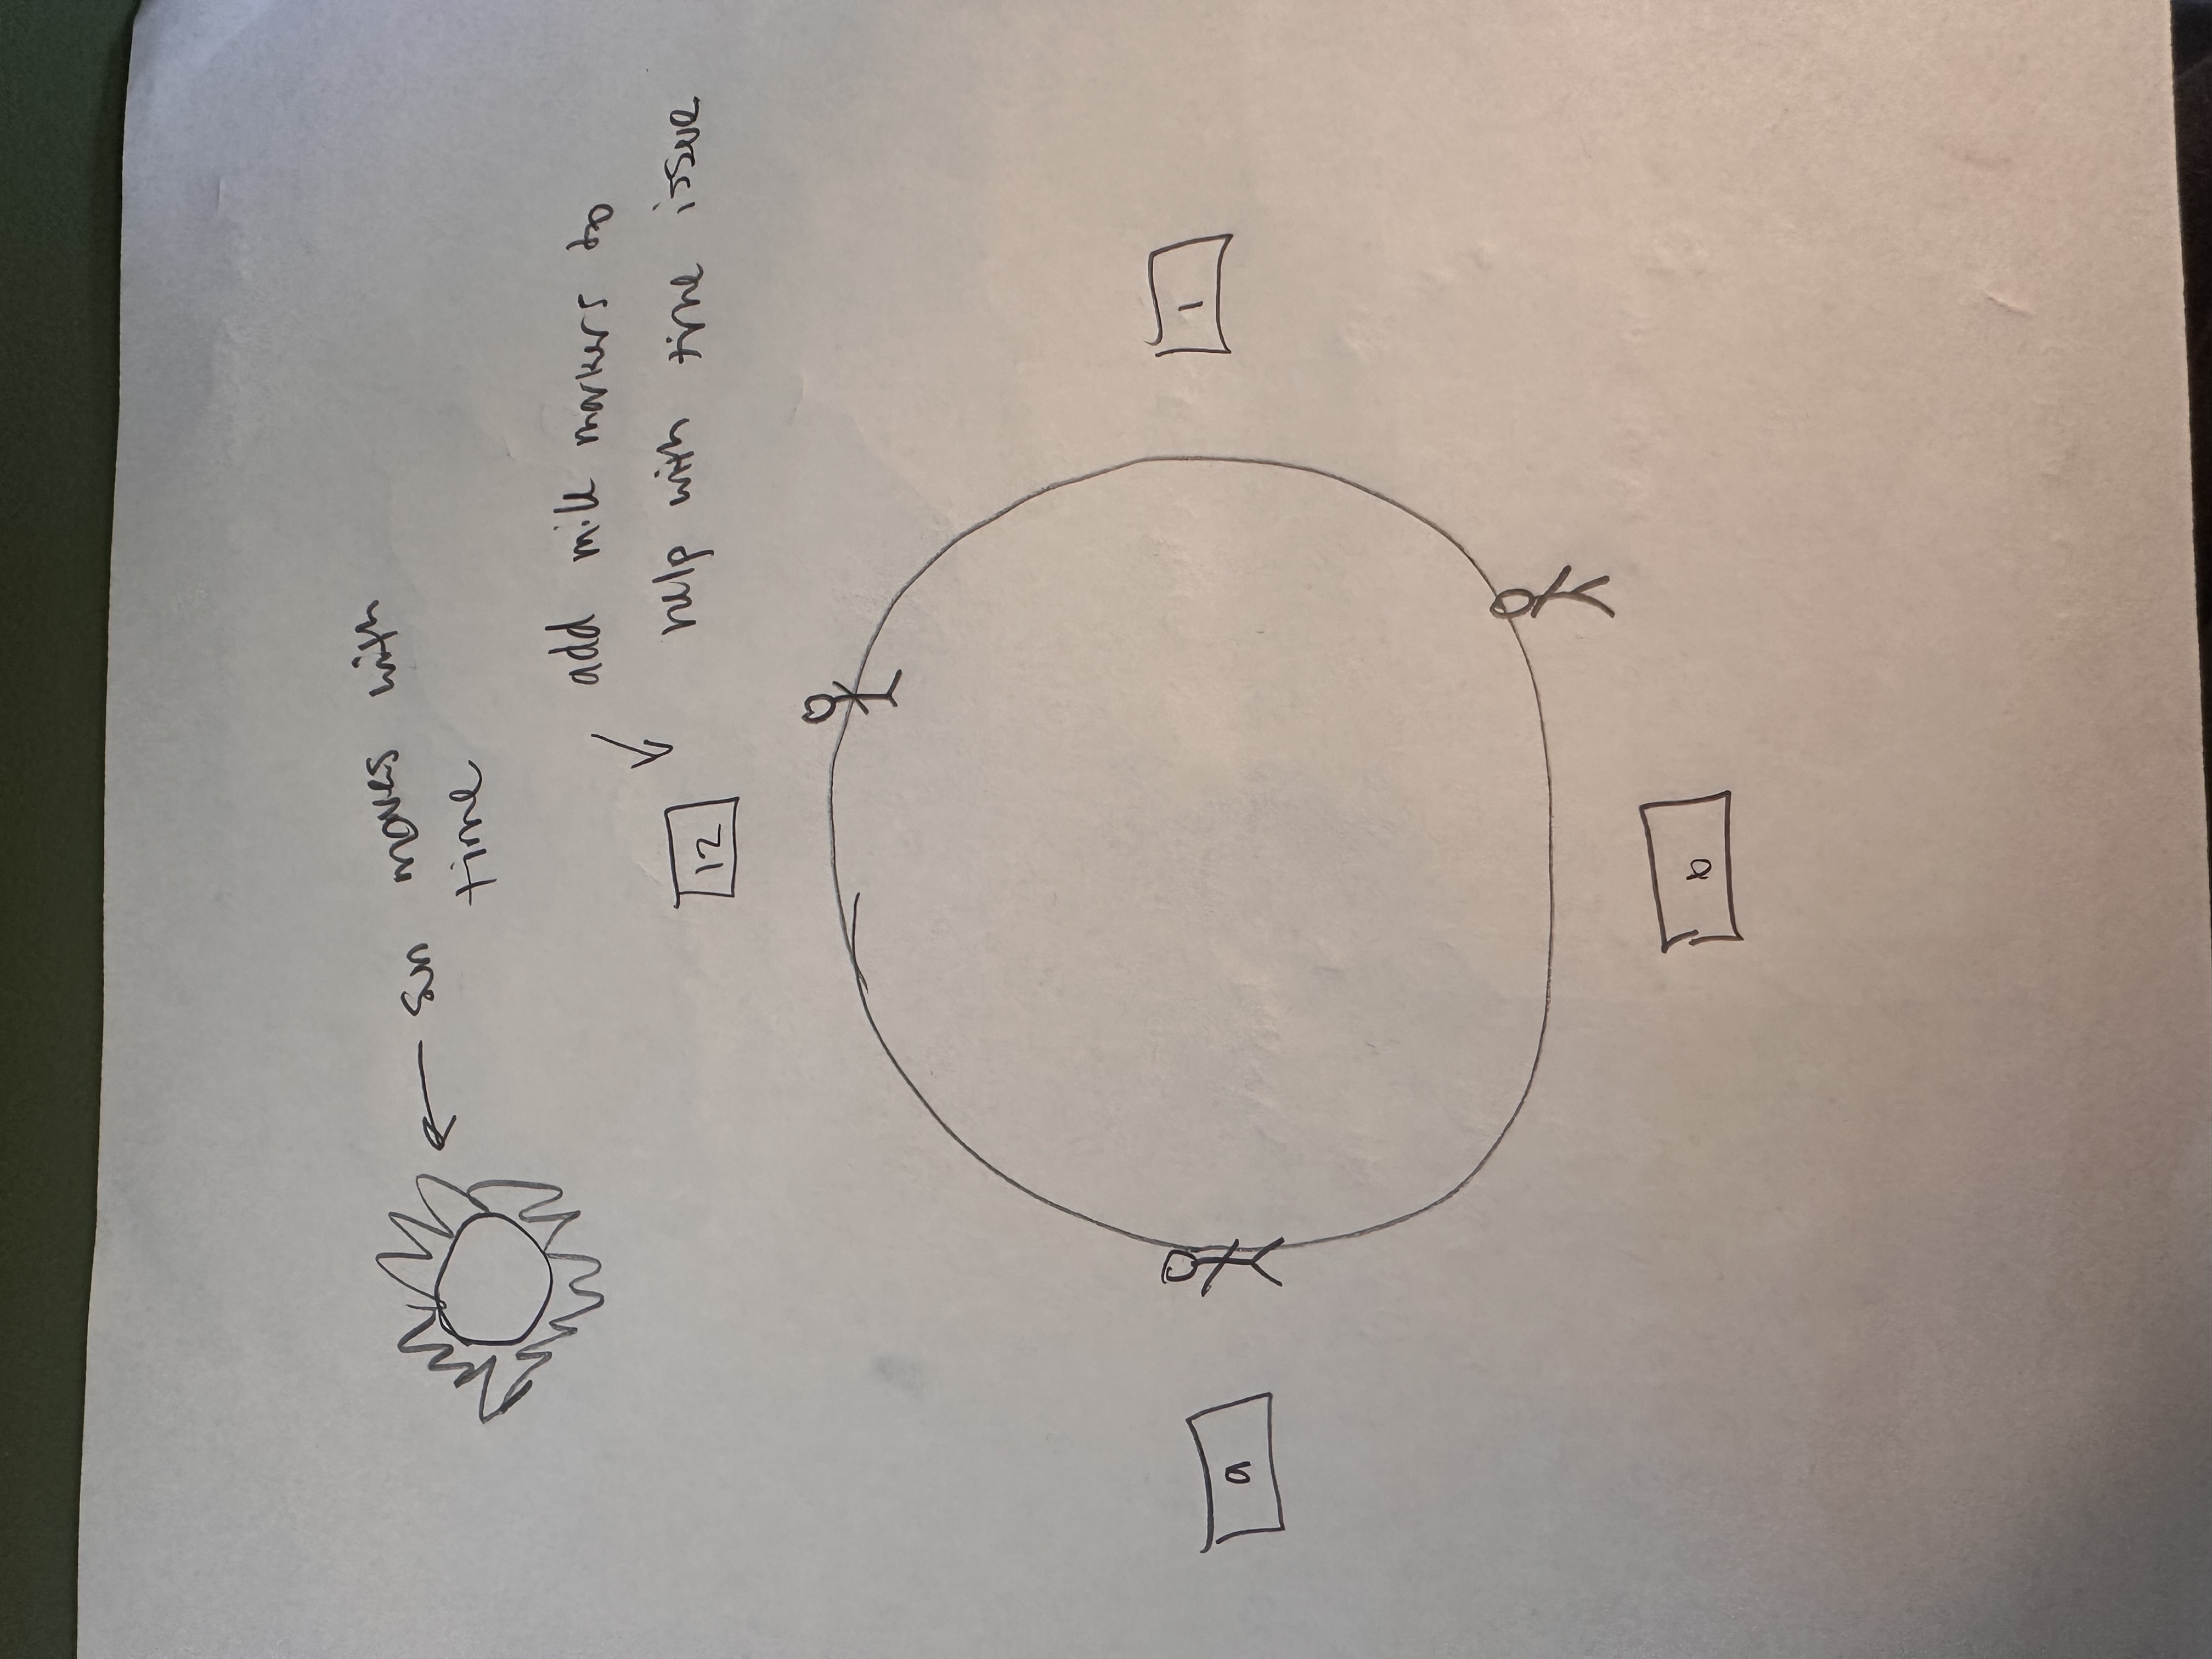 sun moves with
time
add mile markers to
help with time issue
12
9
1
6